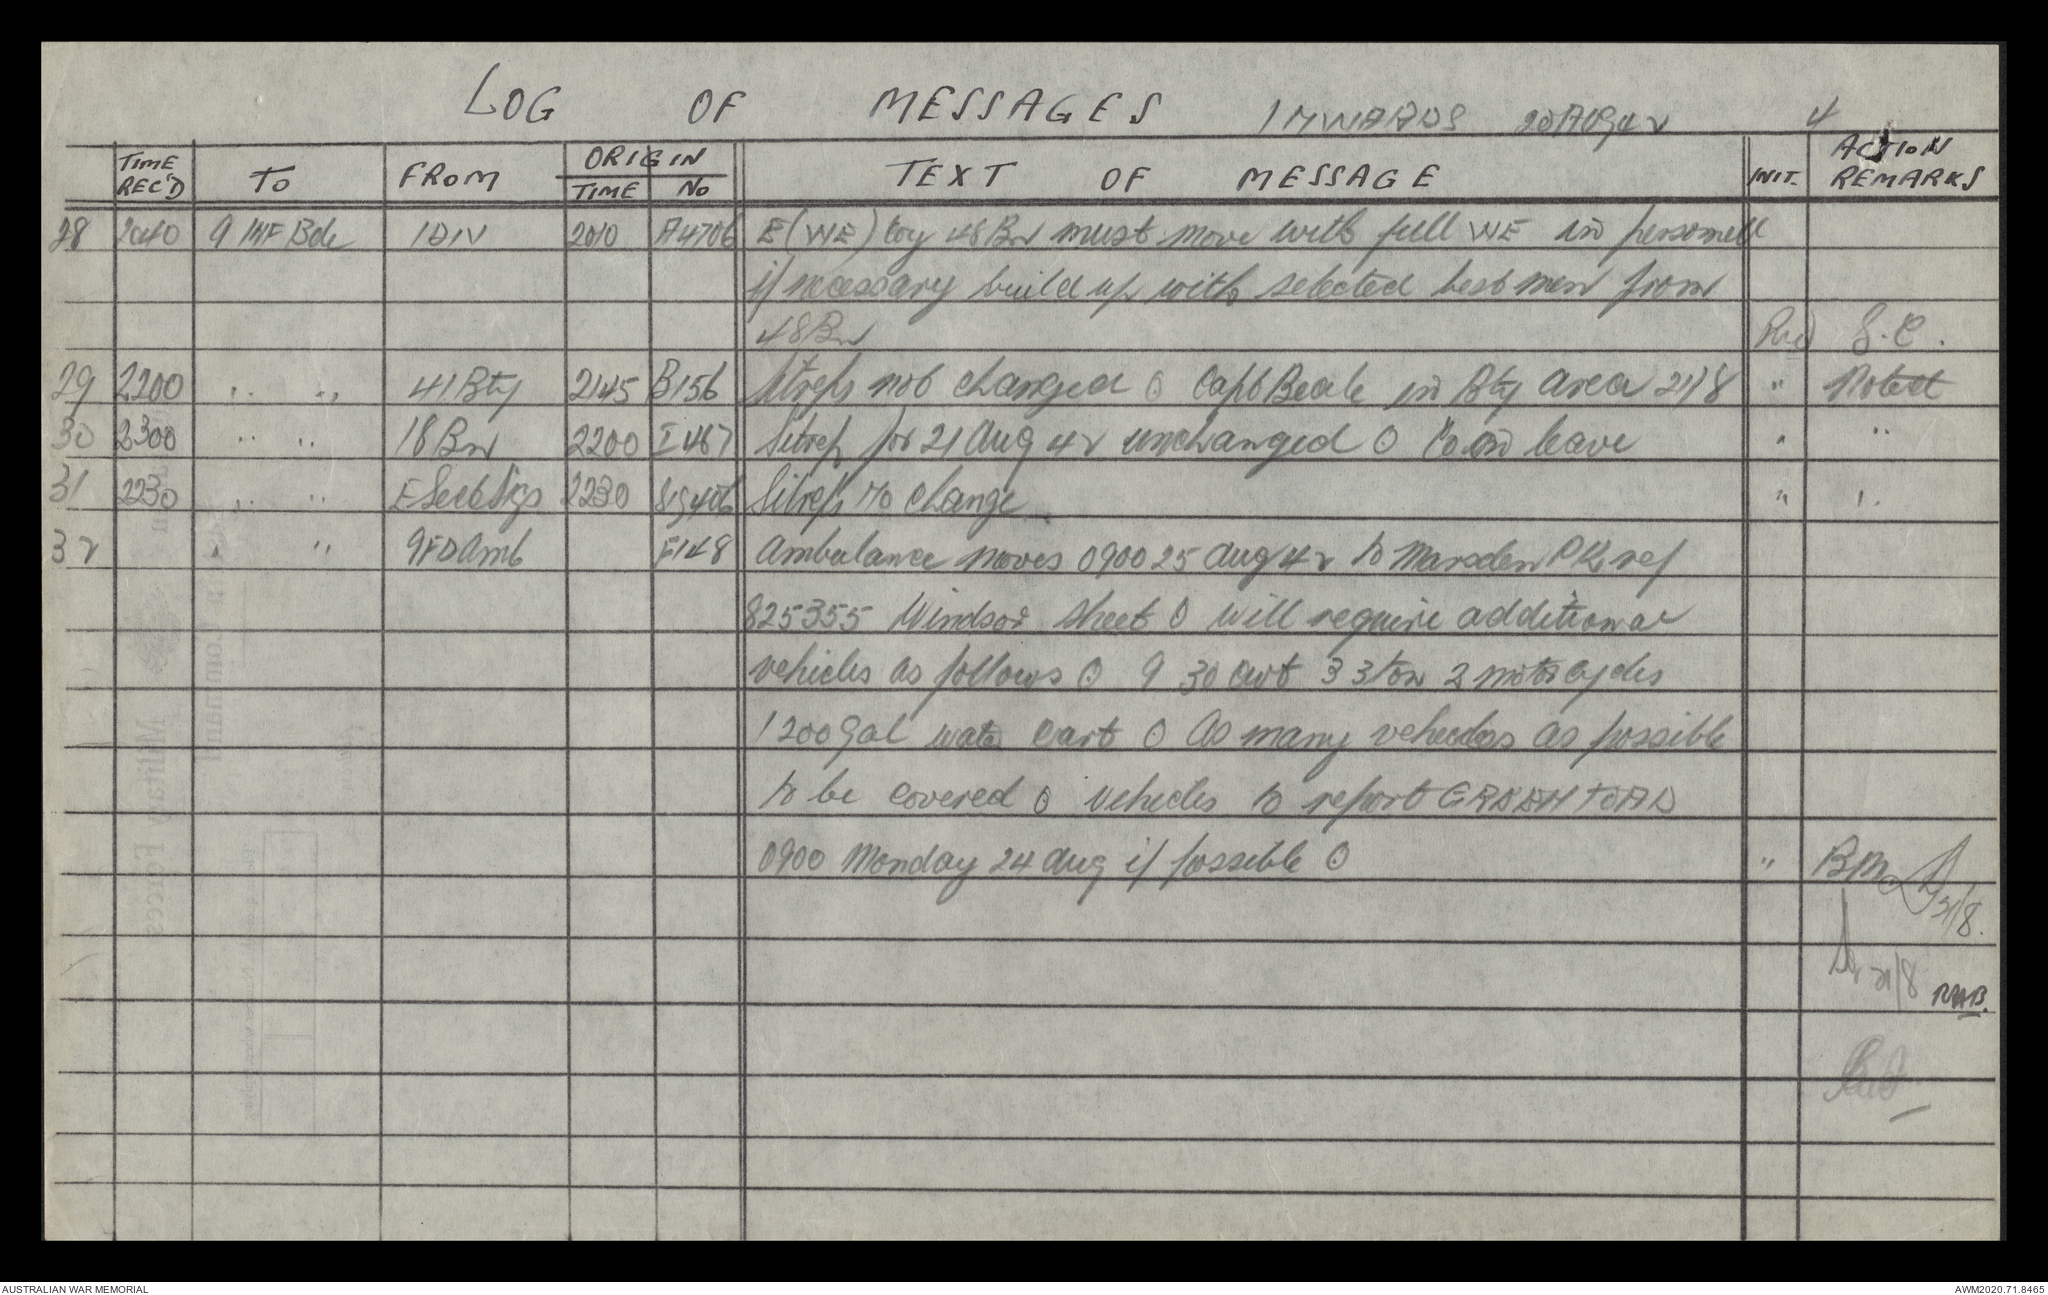 LOG OF MESSAGES INWARDS 20 AUG 42 4
TIME REC'D TO FROM ORIGIN TIME No TEXT OF MESSAGE INIT. ACTION REMARKS
28 2040 9 INF Bde 1 DIV 2010 A4706 E (WE) Coy 48 Bn must move with full WE in personnell
if necessary build up with selected best men from
48 Bn S.C.
29 2200 " " 41 Bty 2145 B156 Sitreps not changed O Capt Beale in Bty area 21/8 " Noted
30 2300 " " 18 Bn 2200 I467 Sitrep for 21 Aug 42 unchanged O Co on leave " "
31 2230 " " E Sect Sigs 2230 Sig406 Sitreps no change " "
32 " " 9 FD Amb F148 Ambulance moves 0900 25 Aug 42 to Marsden PK ref
825355 Windsor Sheet O will require additional
vehicles as follows O 9 30 cwt 3 3 ton 2 motor cycles
1 200 gal water cart O As many vehicles as possible
to be covered O Vehicles to report GREEN ROAD
0900 Monday 24 Aug if possible O " BM
21/8.
21/8 RAB.
AUSTRALIAN WAR MEMORIAL AWM2020.71.8465